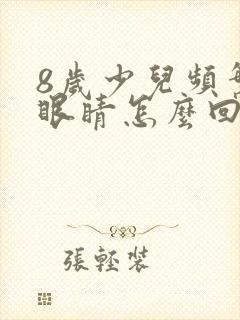 8歲少兒頻
眼睛怎麼回
張輕裝